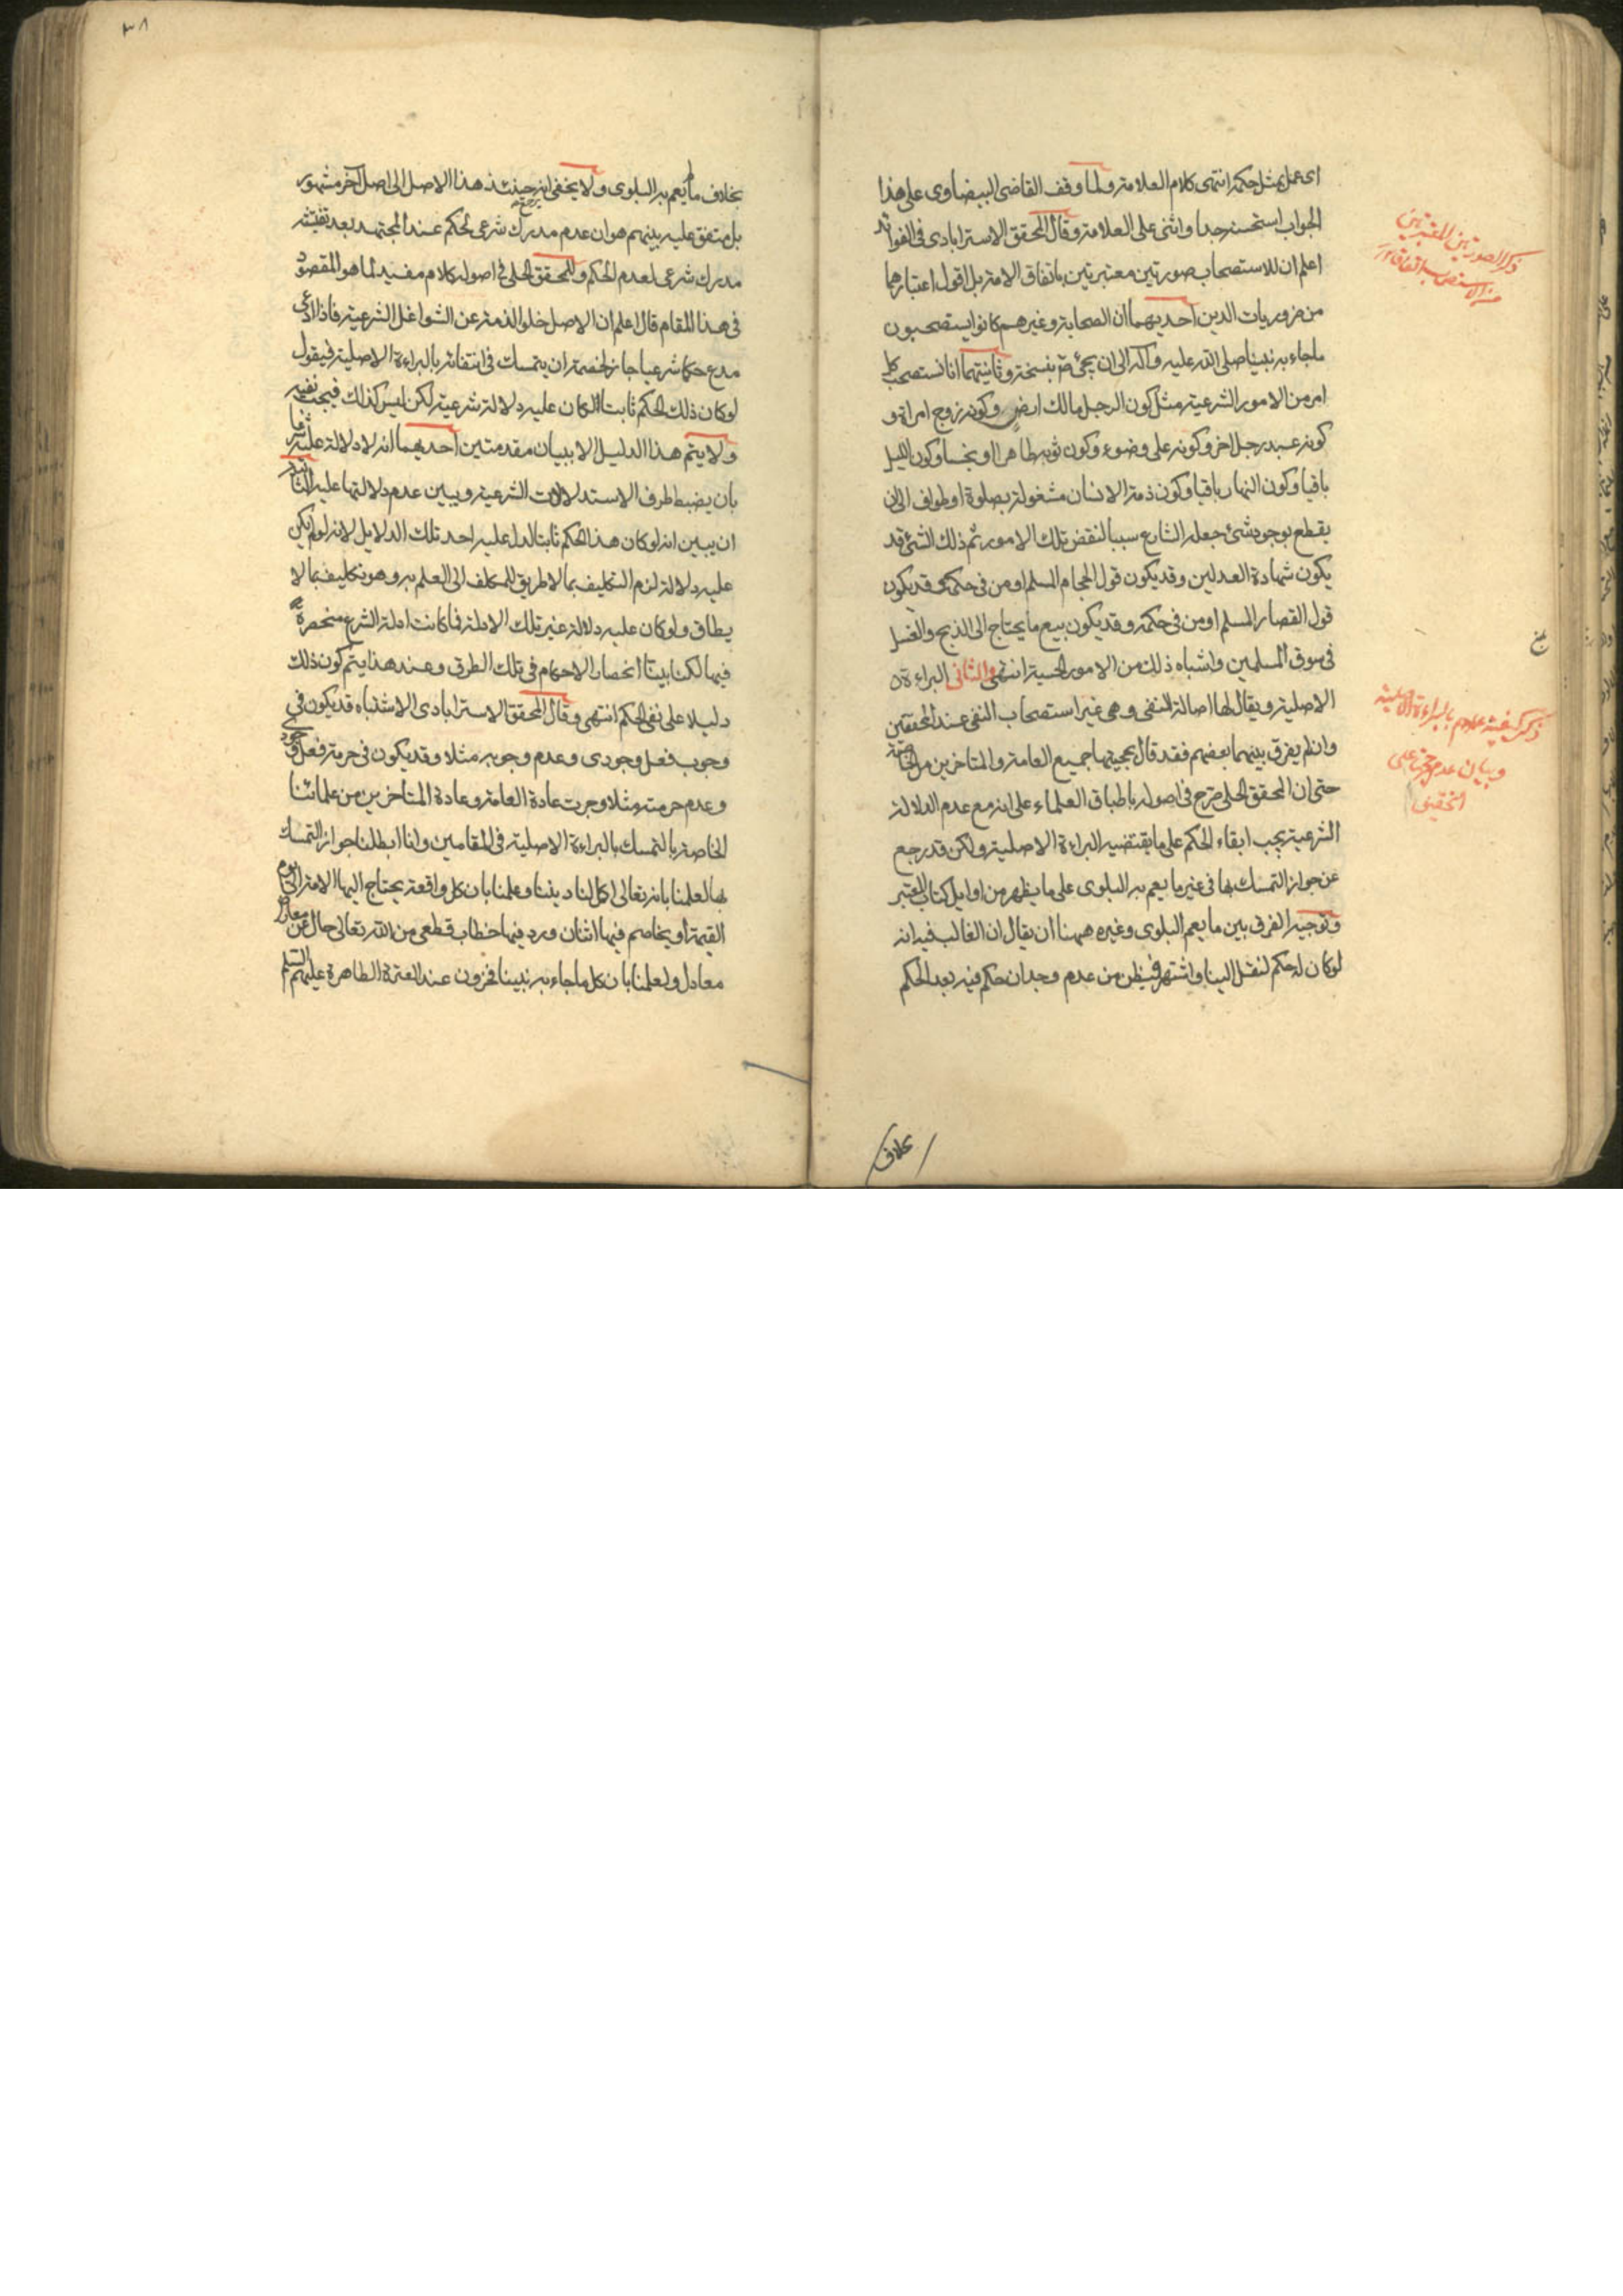 اى عمل بمثل حكمه انتهى كلام العلامة ولما وقف القاضى البيضاوى على هذا
الجواب استحسنه جدا واثنى على العلامة وقال المحقق الاسترابادى فى الفوائد
اعلم ان للاستصحاب صورتين معتبرتين باتفاق الامة بل اقول اعتبارهما
من ضروريات الدين احديهما ان الصحابة وغيرهم كانوا يستصحبون
ماجاء به نبينا صلى الله عليه وآله الى ان يجئ نسخه وثانيتهما انا نستصحب كل
امر من الامور الشرعية مثل كون الرجل مالك ارض وكونه زوج امراة و
كونه عبد رجل اخر وكونه على وضوء وكون ثوبه طاهرا او نجسا وكون الليل
باقيا وكون النهار باقيا وكون ذمة الانسان مشغولة بصلوة او طواف الى ان
يقطع بوجود شئ جعله الشارع سببا لنقض تلك الامور ثم ذلك الشئ قد
يكون شهادة العدلين وقد يكون قول الحجام المسلم او من فى حكمه وقد يكون
قول القصار المسلم او من فى حكمه وقد يكون بيع ما يحتاج الى الذبح والغسل
فى سوق المسلمين واشباه ذلك من الامور الحسية انتهى والثانى البراءة
الاصلية ويقال لها اصالة النفى وهى غير استصحاب النفى عند المحققين
وان لم يفرق بينهما بعضهم فقد قال بحجيتها جميع العامة والمتاخرين من الخاصة
حتى ان المحقق الحلى صرح فى اصوله باطباق العلماء على انه مع عدم الدلالة
الشرعية يجب ابقاء الحكم على ما يقتضيه البراءة الاصلية ولكن قد رجع
عن جواز التمسك بها فى غير ما يعم به البلوى على ما يظهر من اوايل كتاب المعتبر
وتوجيه الفرق بين ما يعم البلوى وغيره ههنا ان يقال ان الغالب فيه انه
لو كان له حكم لنقل الينا واشتهر فيظن من عدم وجدان حكم فيه بعد الحكم
بخلاف
ذكر الصورتين المعتبرتين
من الاستصحاب باتفاق
ذكر كيفية بالبراءة الاصلية
وبيان عدم حجيتها على
التحقيق
٣٨
بخلاف ما يعم به البلوى ولا يخفى انه حينئذ يرجع هذا الاصل الى اصل آخر مشهور
بل متفق عليه بينهم هو ان عدم مدرك شرعى لحكم عند المجتهد بعد تفتيشه
مدرك شرعى لعدم الحكم وللمحقق الحلى فى اصوله كلام مفيد لما هو المقصود
فى هذا المقام قال اعلم ان الاصل خلو الذمة عن الشواغل الشرعية فاذا ادعى
مدع حكما شرعيا جاز لخصمه ان يتمسك فى انتفائه بالبراءة الاصلية فيقول
لو كان ذلك الحكم ثابتا لكان عليه دلالة شرعية لكن ليس كذلك فيجب نفيه
ولا يتم هذا الدليل الا ببيان مقدمتين احديهما انه لا دلالة عليه شرعا
بان يضبط طرق الاستدلالات الشرعية ويبين عدم دلالتها عليه الثانية
ان يبين انه لو كان هذا الحكم ثابتا لدل عليه احد تلك الدلايل لانه لو لم يكن
عليه دلالة لزم التكليف بما لا طريق للمكلف الى العلم به وهو تكليف بما لا
يطاق ولو كان عليه دلالة غير تلك الادلة فما كانت ادلة الشرع منحصرة
فيها لكن بينا انحصار الاحكام فى تلك الطرق وعند هذا يتم كون ذلك
دليلا على نفى الحكم انتهى وقال المحقق الاسترابادى الاشتباه قد يكون فى
وجوب فعل وجودى وعدم وجوبه مثلا وقد يكون فى حرمة فعل وجودى
وعدم حرمته مثلا وجرت عادة العامة وعادة المتاخرين من علمائنا
الخاصة بالتمسك بالبراءة الاصلية فى المقامين وانا ابطلنا جواز التمسك
بها لعلمنا بانه تعالى اكمل لنا ديننا وعلمنا بان كل واقعة يحتاج اليها الامة الى يوم
القيمة او يخاصم فيها اثنان ورد فيها خطاب قطعى من الله تعالى خال عن معارض
معادل ولعلمنا بان كل ماجاء به نبينا مخزون عند العترة الطاهرة عليهم السلم